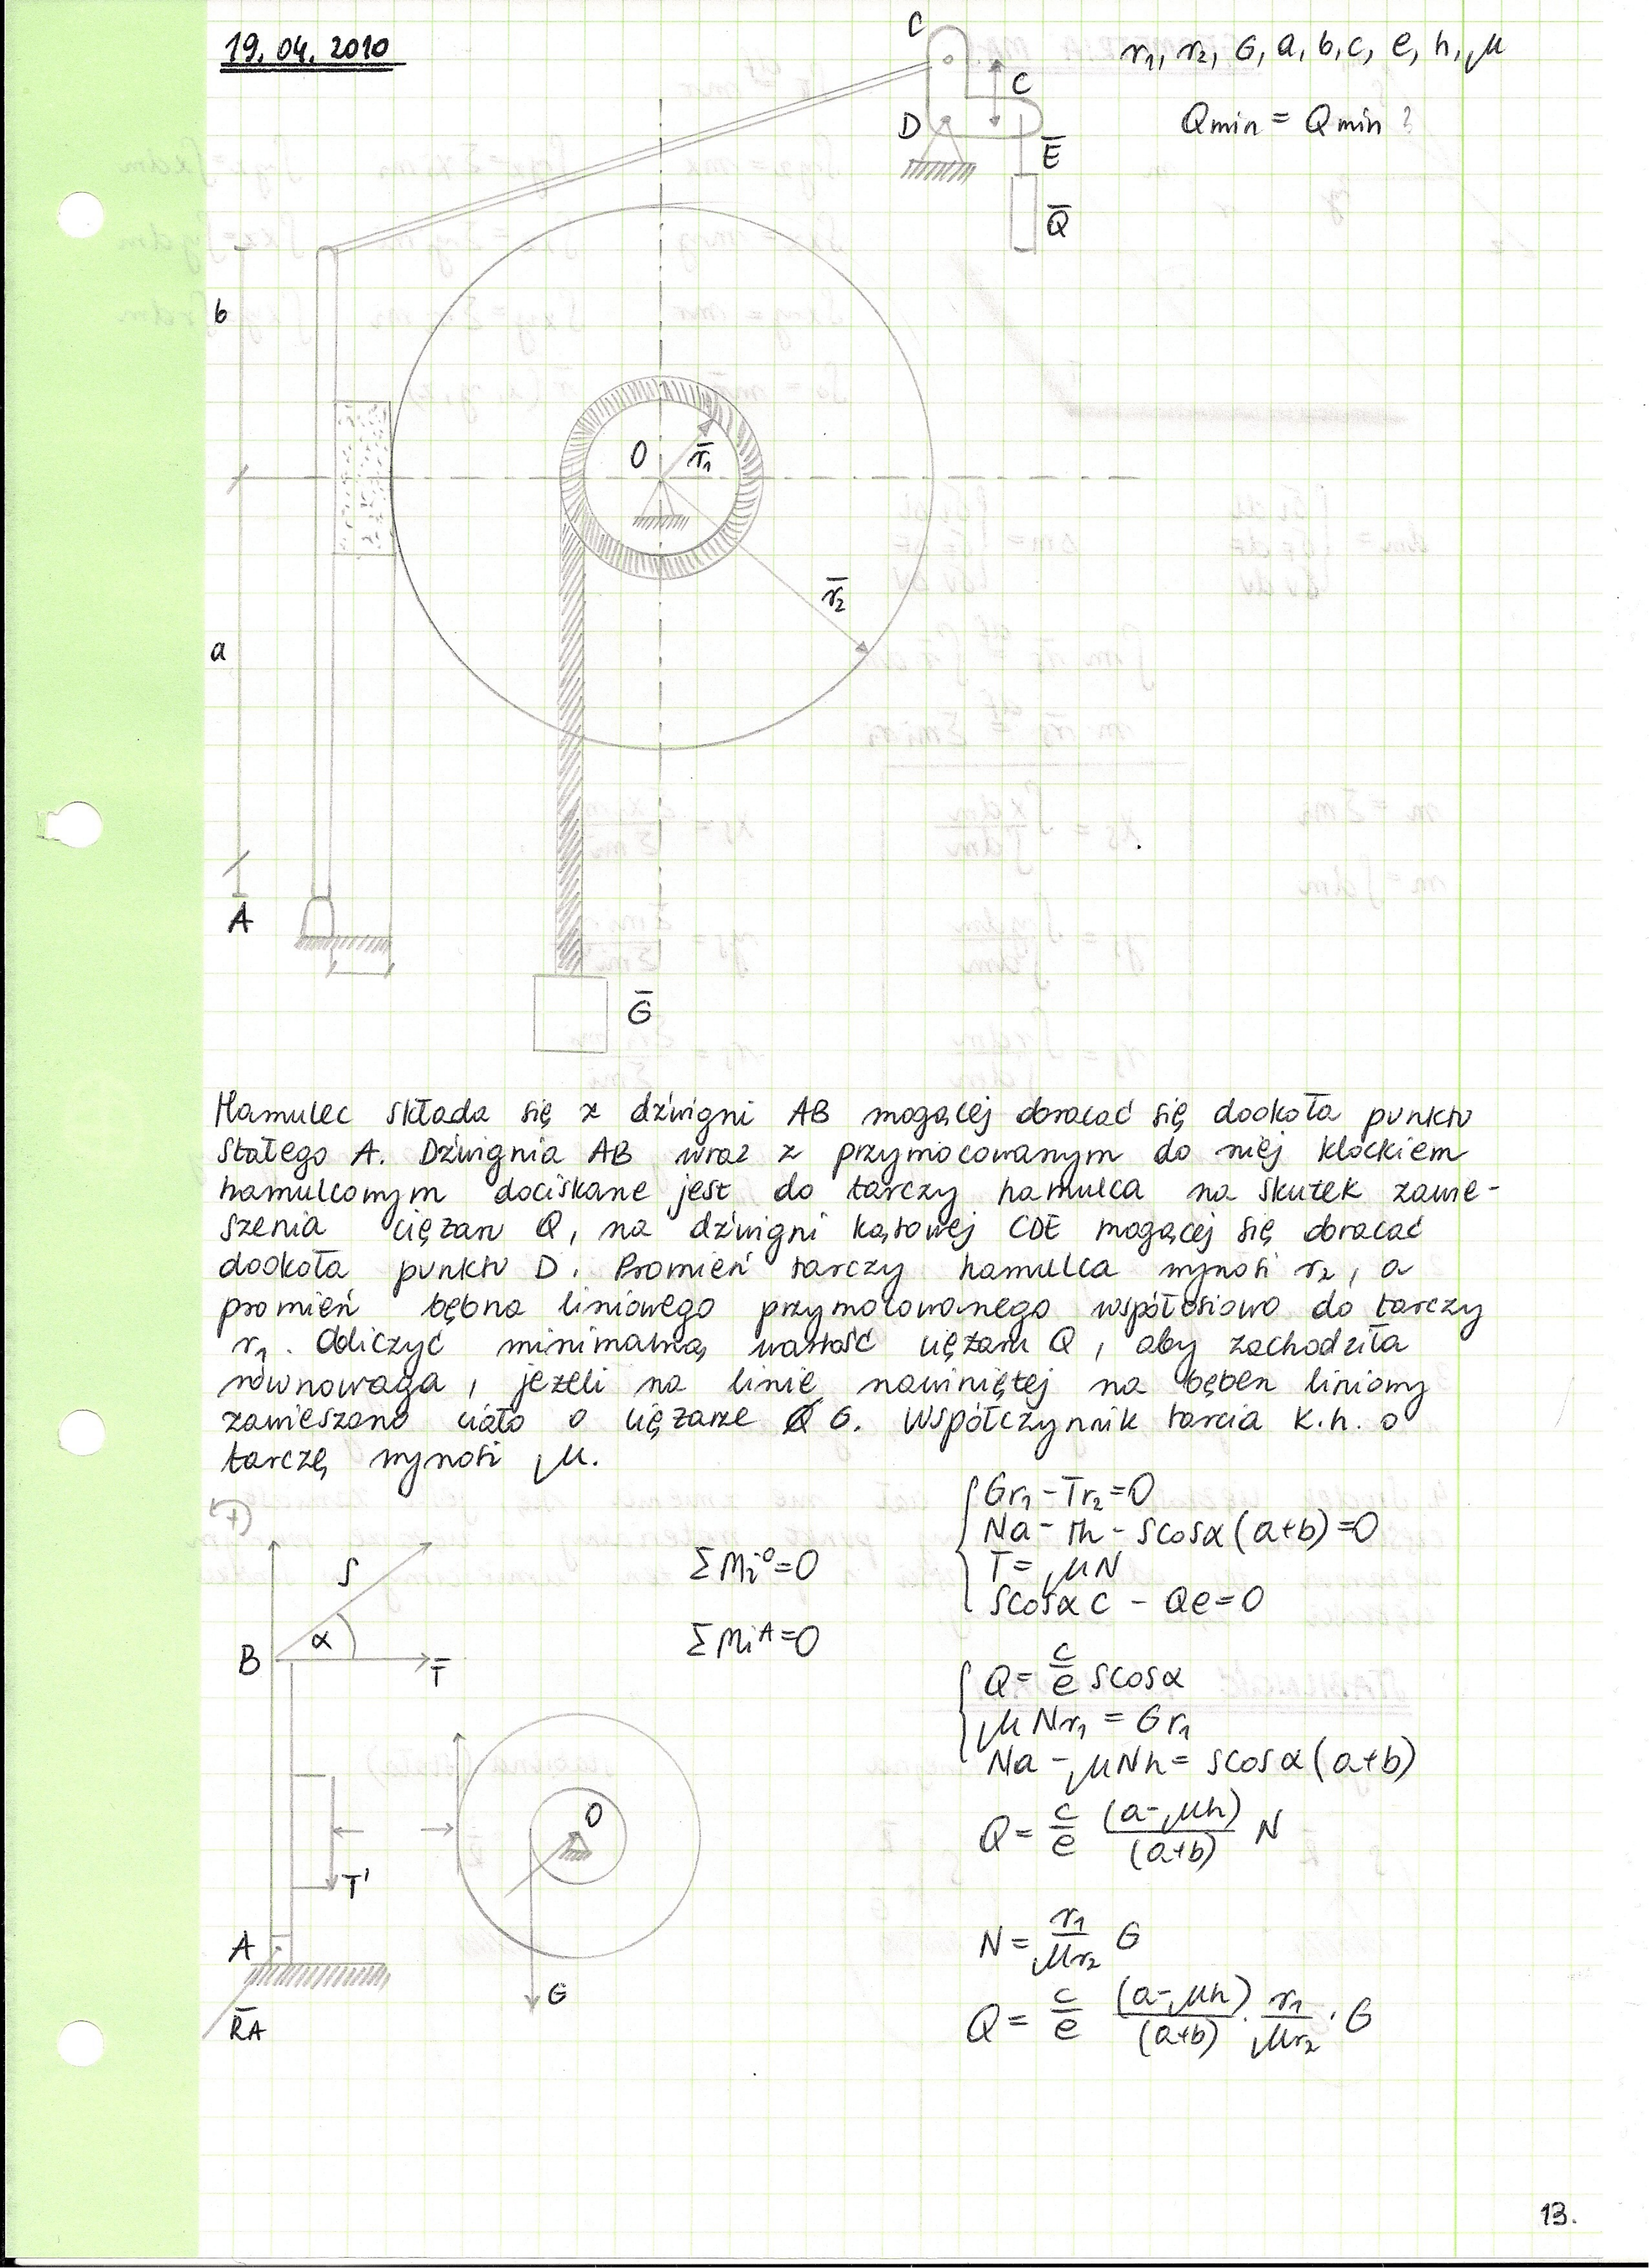 19.04.2010
r₁, r₂, G, a, b, c, e, h, μ
Qmin = Qmin ?
C
c
D
E̅
Q̅
b
O
r̅₁
r̅₂
a
A
G̅
Hamulec składa się z dźwigni AB mogącej obracać się dookoła punktu
stałego A. Dźwignia AB wraz z przymocowanym do niej klockiem
hamulcowym dociskane jest do tarczy hamulca na skutek zawie-
szenia ciężaru Q, na dźwigni kątowej CDE mogącej się obracać
dookoła punktu D. Promień tarczy hamulca wynosi r₂, a
promień bębna liniowego przymocowanego współosiowo do tarczy
r₁. Obliczyć minimalną wartość ciężaru Q, aby zachodziła
równowaga, jeżeli na linie nawiniętej na bęben liniowy
zawieszono ciało o ciężarze G. Współczynnik tarcia k.h. o
tarczę wynosi μ.
+
S
α
B
T̅
T'
A
R̅A
O
G
ΣMi⁰=0
ΣMiᴬ=0
Gr₁ - Tr₂=0
Na - Th - Scosα(a+b)=0
T= μN
Scosα c - Qe=0
Q= c/e Scosα
μNr₁ = Gr₁
Na - μNh = Scosα(a+b)
Q= c/e (a-μh)/(a+b) N
N= r₁/μr₂ G
Q= c/e (a-μh)/(a+b) · r₁/μr₂ · G
13.